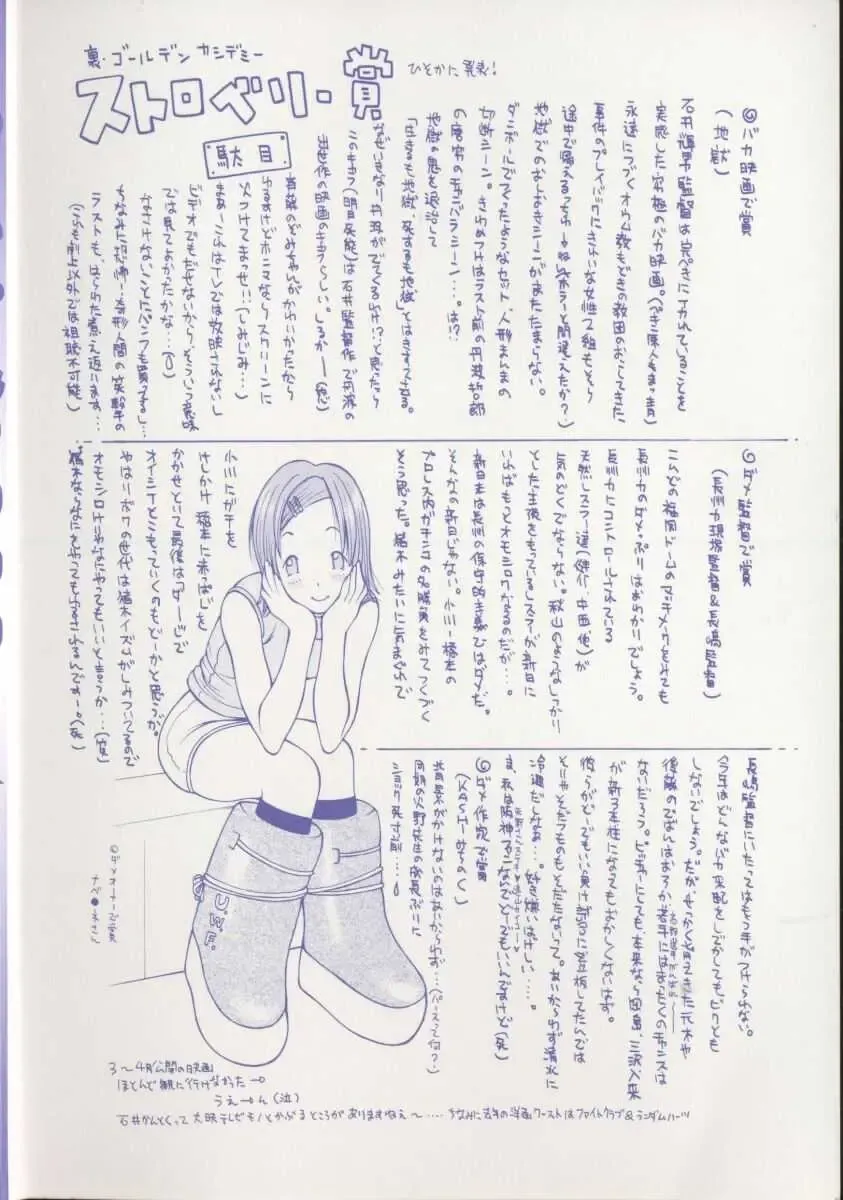 裏・ゴールデンカシデミー
ストロベリー・賞
ひそかに発表!
駄目
◎バカ映画で賞
(地獄)
石井輝男監督は完ぺきにイカれていることを
実感した究極のバカ映画。
永遠につづくオウム教もどきの教団のおこしてきた
事件のプレイバックに
地獄でのおしおきシーンがまたたまらない。
ダンボールでつくったようなセット、人形まるわかの
切断シーン。きわめつけはラスト前の丹波哲郎
の唐突のチャンバラシーン…。は!?
地獄の鬼を退治して
「生きるも地獄、死するも地獄」とはきすてさる。
なぜいきなり丹波がでてくるわけ!?と思ったら
このキャラ(明日死能)は石井監督作で丹波の
主役作の映画のキャラらしい。しるかー(怒)
ゆるすけどホンマならスクリーンに
火つけてまっせ!!(しみじみ…)
まあーこれはTVでは放映されないし
ビデオでもだせないからそういう意味
では見てよかったかな…(○)
なさけないことにパンフも買ってるし…
ラストも、はらわた煮え返ります…
(これも劇上以外では視聴不可能)
◎ダメ監督で賞
(長州力現場監督&長嶋監督)
こないだの福岡ドームのマッチメークをみても
長州力のダメっぷりはわかるでしょう。
長州力にコントロールされている
天然レスラー達(健介、中西他)が
気のどくでならない。秋山のようなしっかり
とした主張をもっているレスラーが新日に
いればもっとオモシロクなるのだが…。
新日本は長州の保守的主義ではダメだ。
そんなの新日じゃない。小川ー橋本の
プロレス内ガチンコの名勝負をみてつくづく
そう思った。猪木みたいに気まぐれで
小川にガチを
けしかけ橋本に赤っぱじを
かかせといて最後は1・2・3・ダーッで
オイシイとこもっていくのもどーかと思うが。
やはりボクの世代は猪木イズムがしみついてるので
オモシロけりゃなにやってもいいと言うか…(笑)
猪木ならなにをやってもゆるされるんですー。(死)
長嶋監督にいたってはもう手がつけられない。
今年はどんなバカ采配をしでかしてもビクとも
しないでしょう。だが、せっかく育ってきた元木や
後藤のでばんはおろか若手にはまったくのチャンスは
ないだろう。ピッチャーにしても、本来なら岡島、三沢、入来
が新ローテ投手になってもおかしくないはず。
彼らがどーでもいい負け試合に登板してたんでは
そりゃそだつものもそだたないって。あいかわらず清水に
冷遇だしなあ…。好き嫌いはげしい……。
ま、私は阪神ファンなんでどーでもいいんですけど(死)
◎ダメ作家で賞
(KASHIみちのく)
背景がかけないのはあいかわらず…(パースって何?)
同期の火野先生の成長ぶりに
ショック死寸前……
U.W.F.
©ダメオーナーで賞
ナベ●ネさん
3〜4月公開の映画
ほとんど観に行けなかった→
うえーん(泣)
石井かんとくって大映テレビモノとかぶるところがありますねえ〜……ちなみに去年の洋画ワーストはファイトクラブ&ランダムハーツ